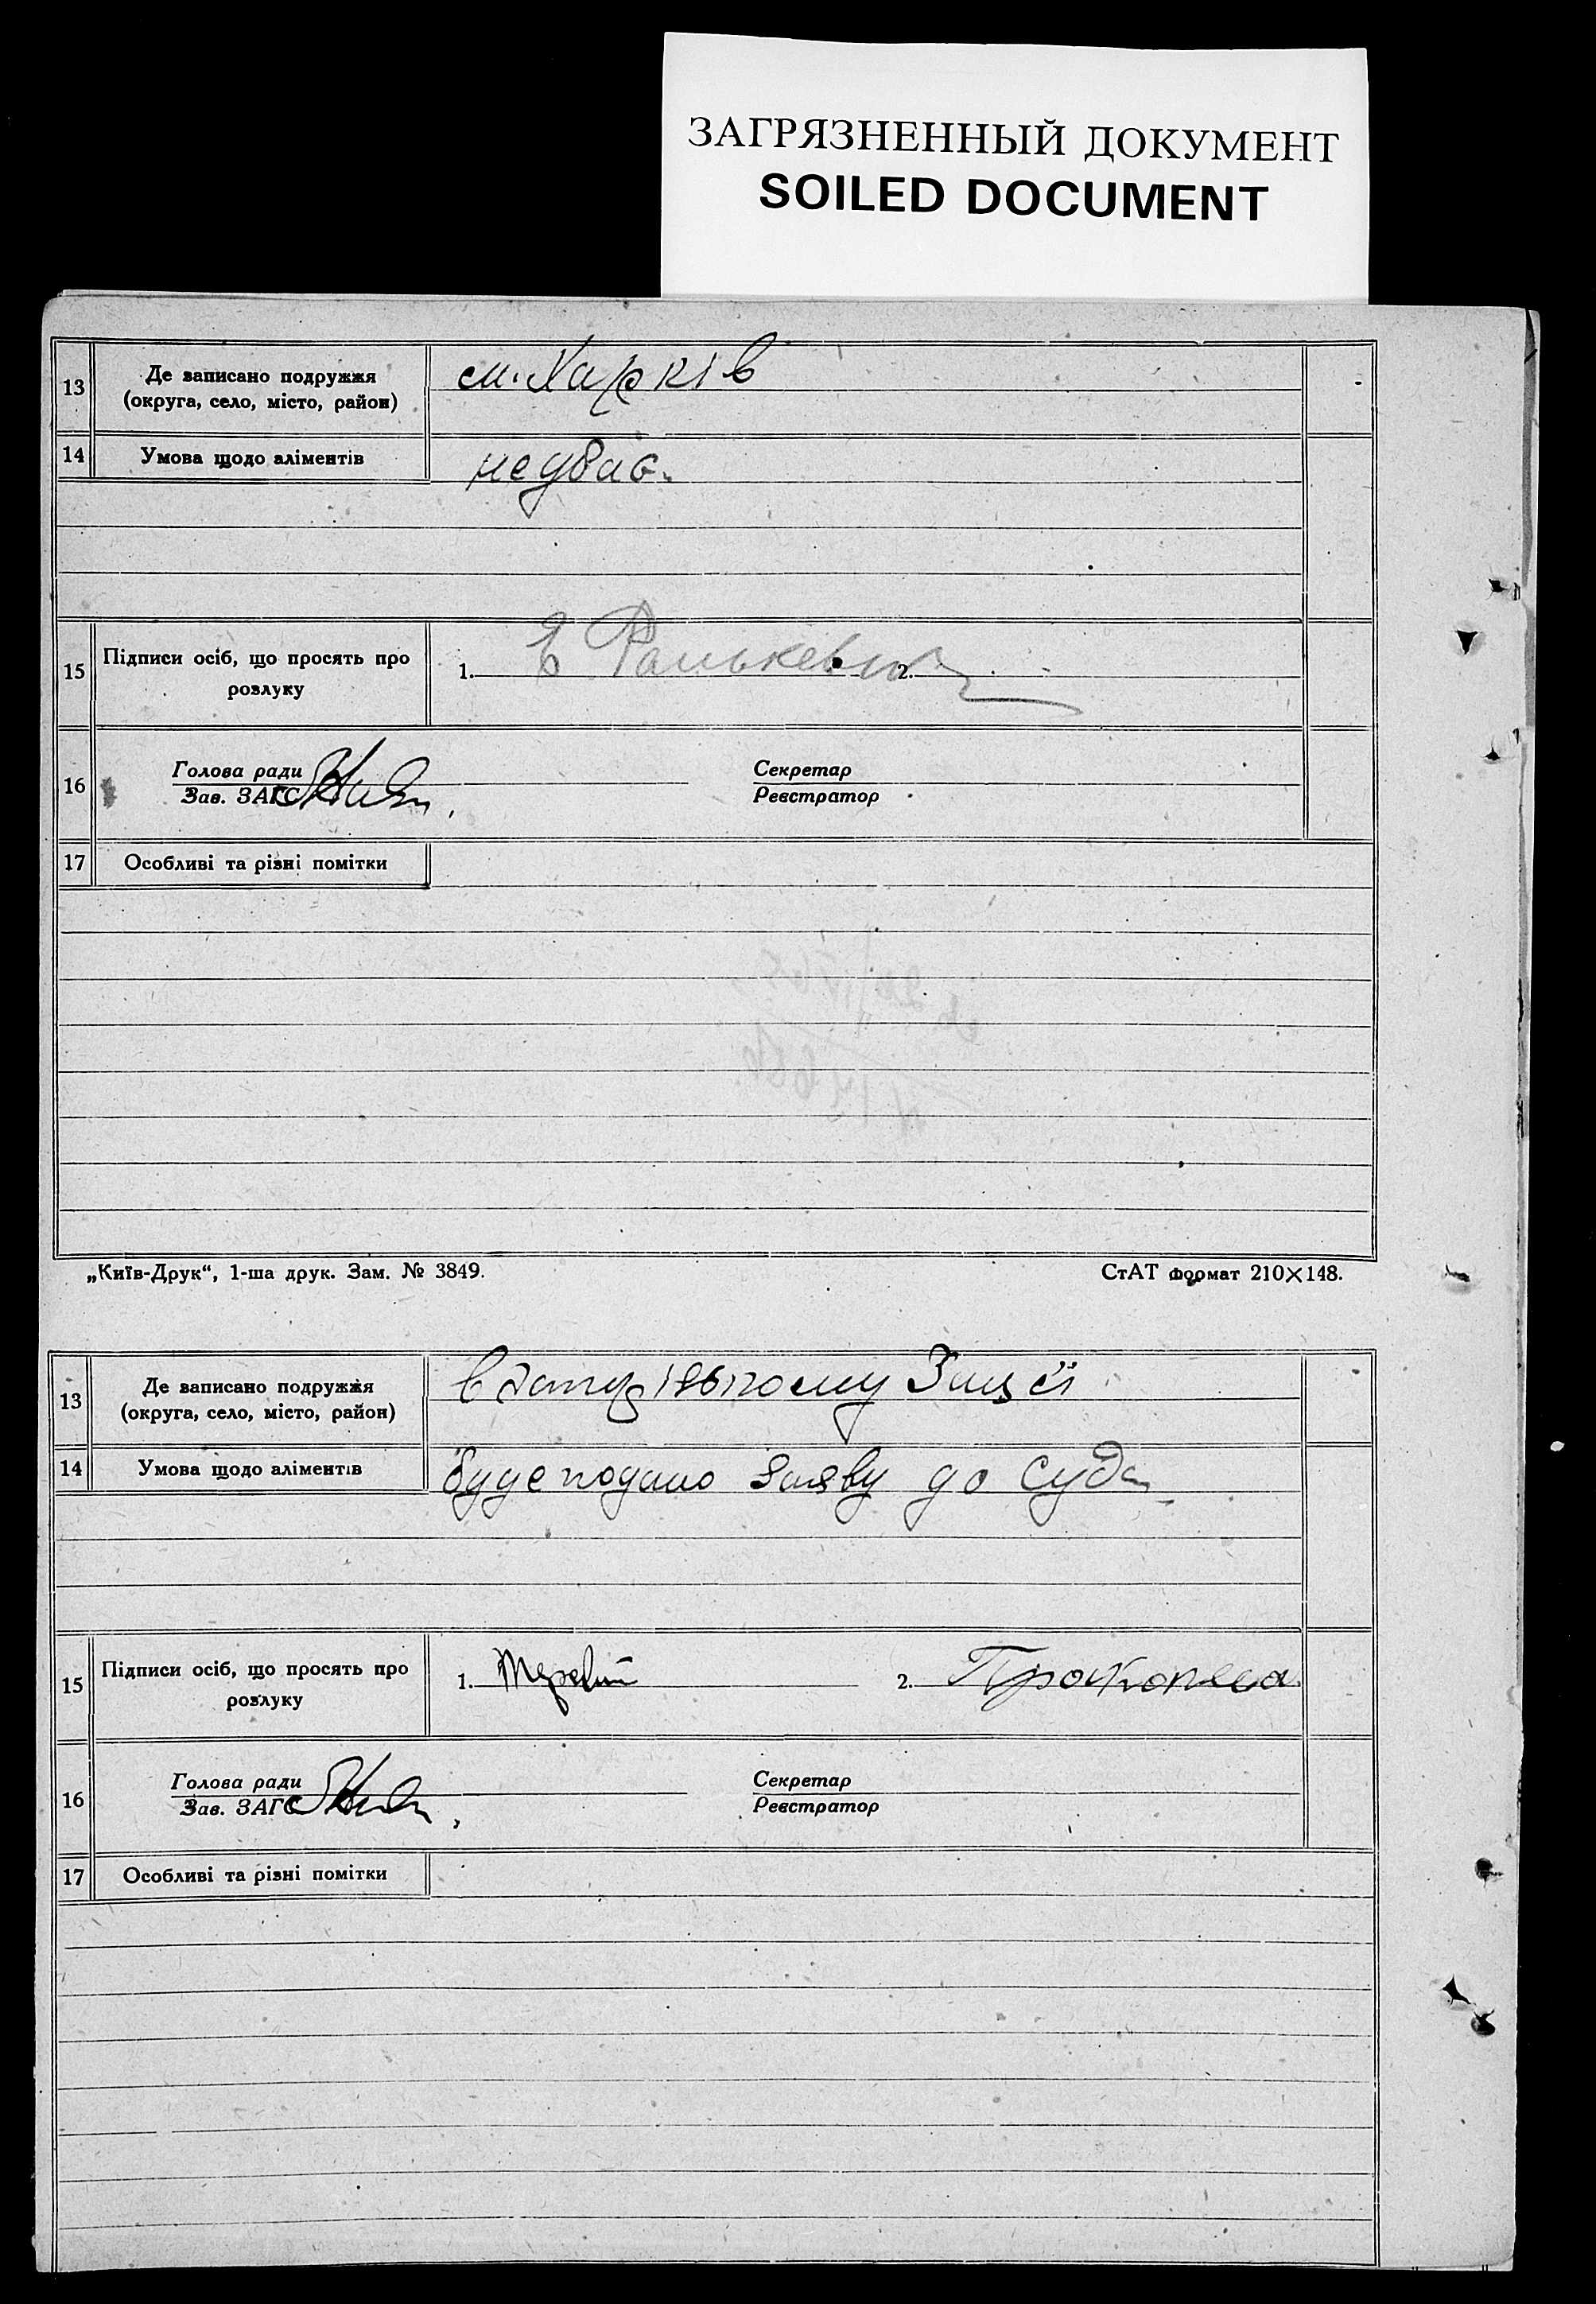 ЗАГРЯЗНЕННЫЙ ДОКУМЕНТ
SOILED DOCUMENT
13 Де записано подружжя
(округа, село, місто, район)
м. Харків
14 Умова щодо аліментів
15 Підписи осіб, що просять про
розлуку
1. 2.
16 Голова ради
Зав. ЗАГС
Секретар
Реєстратор
17 Особливі та різні помітки
„Київ-Друк“, 1-ша друк. Зам. № 3849.
СтАТ формат 210×148.
13 Де записано подружжя
(округа, село, місто, район)
в
14 Умова щодо аліментів
буде подано заяву до суда
15 Підписи осіб, що просять про
розлуку
1. 2.
16 Голова ради
Зав. ЗАГС
Секретар
Реєстратор
17 Особливі та різні помітки